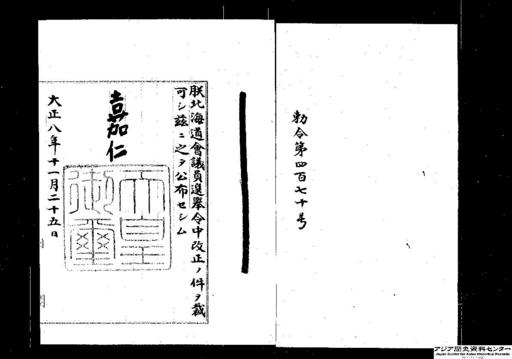 勅令第四百七十号
朕北海道會議員選擧令中改正ノ件ヲ裁
可シ茲ニ之ヲ公布セシム
嘉仁
天皇
御璽
大正八年十一月二十五日
アジア歴史資料センター
Japan Center for Asian Historical Records